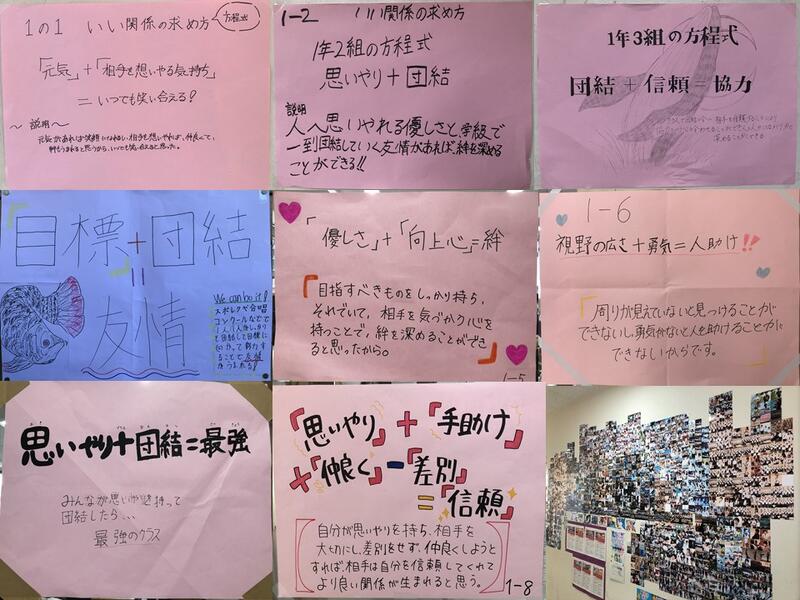 1の1 いい関係の求め方
方程式
「元気」+「相手を想いやる気持ち」
=いつでも笑い合える!
～説明～
元気があれば笑顔になれるし、相手を想いやれば、仲良くて、
1-2 いい関係の求め方
1年2組の方程式
思いやり+団結
説明
人へ思いやれる優しさと、学級で
一到団結していく友情があれば、絆を深める
ことができる!!
1年3組の方程式
団結+信頼=協力
深めることができる
目標+団結
=
友情
We can do it!
スポレクや合唱
コンクールなどで
1人1人がしっかり
と団結して目標に
向かって努力す
ることで友情
がうまれる!
「優しさ」+「向上心」=絆
「目指すべきものをしっかり持ち、
それでいて、相手を気づかう心を
持つことで、絆を深めることができ
ると思ったから。」
1-5
1-6
視野の広さ+勇気=人助け!!
「周りが見えていないと見つけることが
できないし、勇気がないと人を助けることが
できないからです。」
思いやり+団結=最強
みんなが思いやりを持って
団結したら...
最強のクラス
「思いやり」+「手助け」
+「仲良く」-「差別」
=「信頼」
自分が思いやりを持ち、相手を
大切にし、差別をせず、仲良くしようと
すれば、相手は自分を信頼してくれて
より良い関係が生まれると思う。
1-8